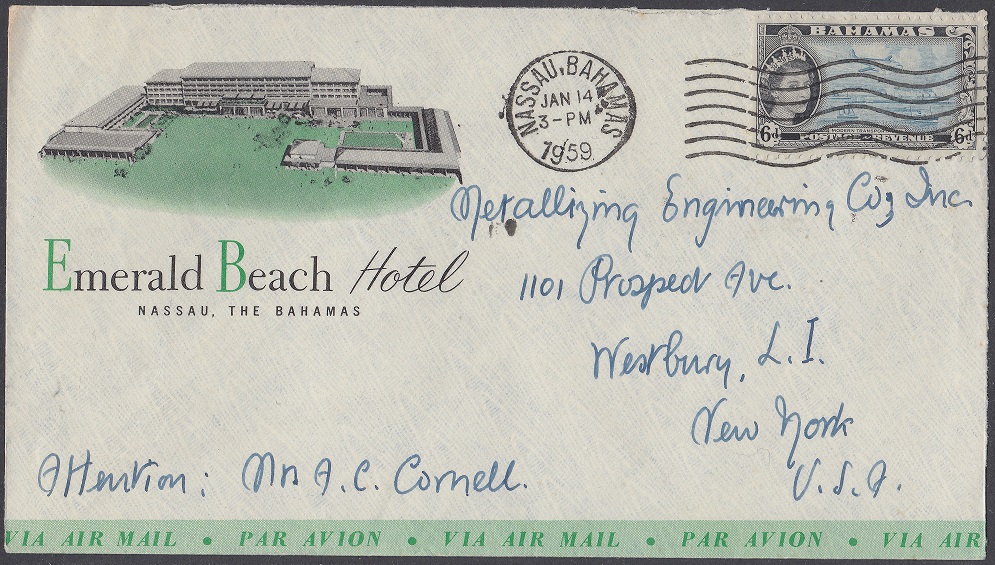 BAHAMAS
6d 6d
MODERN TRANSPORT
POSTAGE & REVENUE
NASSAU, BAHAMAS
JAN 14
3-PM
1959
Emerald Beach Hotel
NASSAU, THE BAHAMAS
Metallizing Engineering Co, Inc.
1101 Prospect Ave.
Westbury, L.I.
New York
U.S.A.
Attention: Mr A.C. Cornell.
VIA AIR MAIL • PAR AVION • VIA AIR MAIL • PAR AVION • VIA AIR